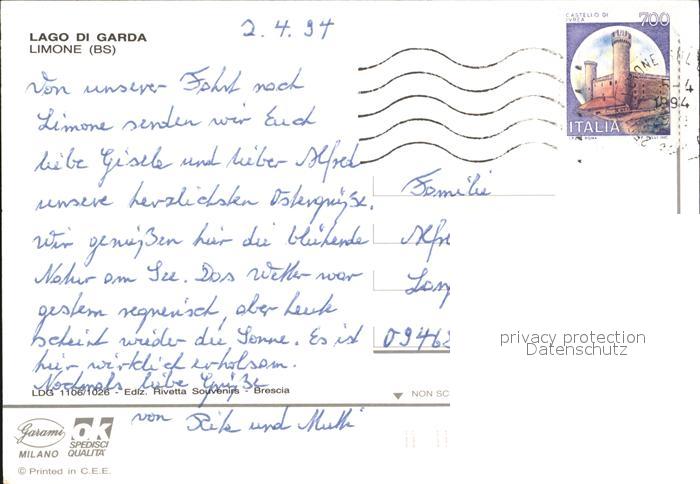 2.4.94
LAGO DI GARDA
LIMONE (BS)
Von unserer Fahrt nach
Limone senden wir Euch
liebe Gisela und lieber Alfred
unsere herzlichsten Ostergrüße.
Wir genießen hier die blühende
Natur am See. Das Wetter war
gestern regnerisch, aber heute
scheint wieder die Sonne. Es ist
hier wirklich erholsam.
Nochmals liebe Grüße
von Rita und Mutti
LDG 1106/1026 - Ediz. Rivetta Souvenirs - Brescia
Garami
MILANO
OK
SPEDISCI
QUALITÀ
© Printed in C.E.E.
CASTELLO DI
IVREA
700
ITALIA
1994
Familie
Alfre
0946
NON SC
privacy protection
Datenschutz